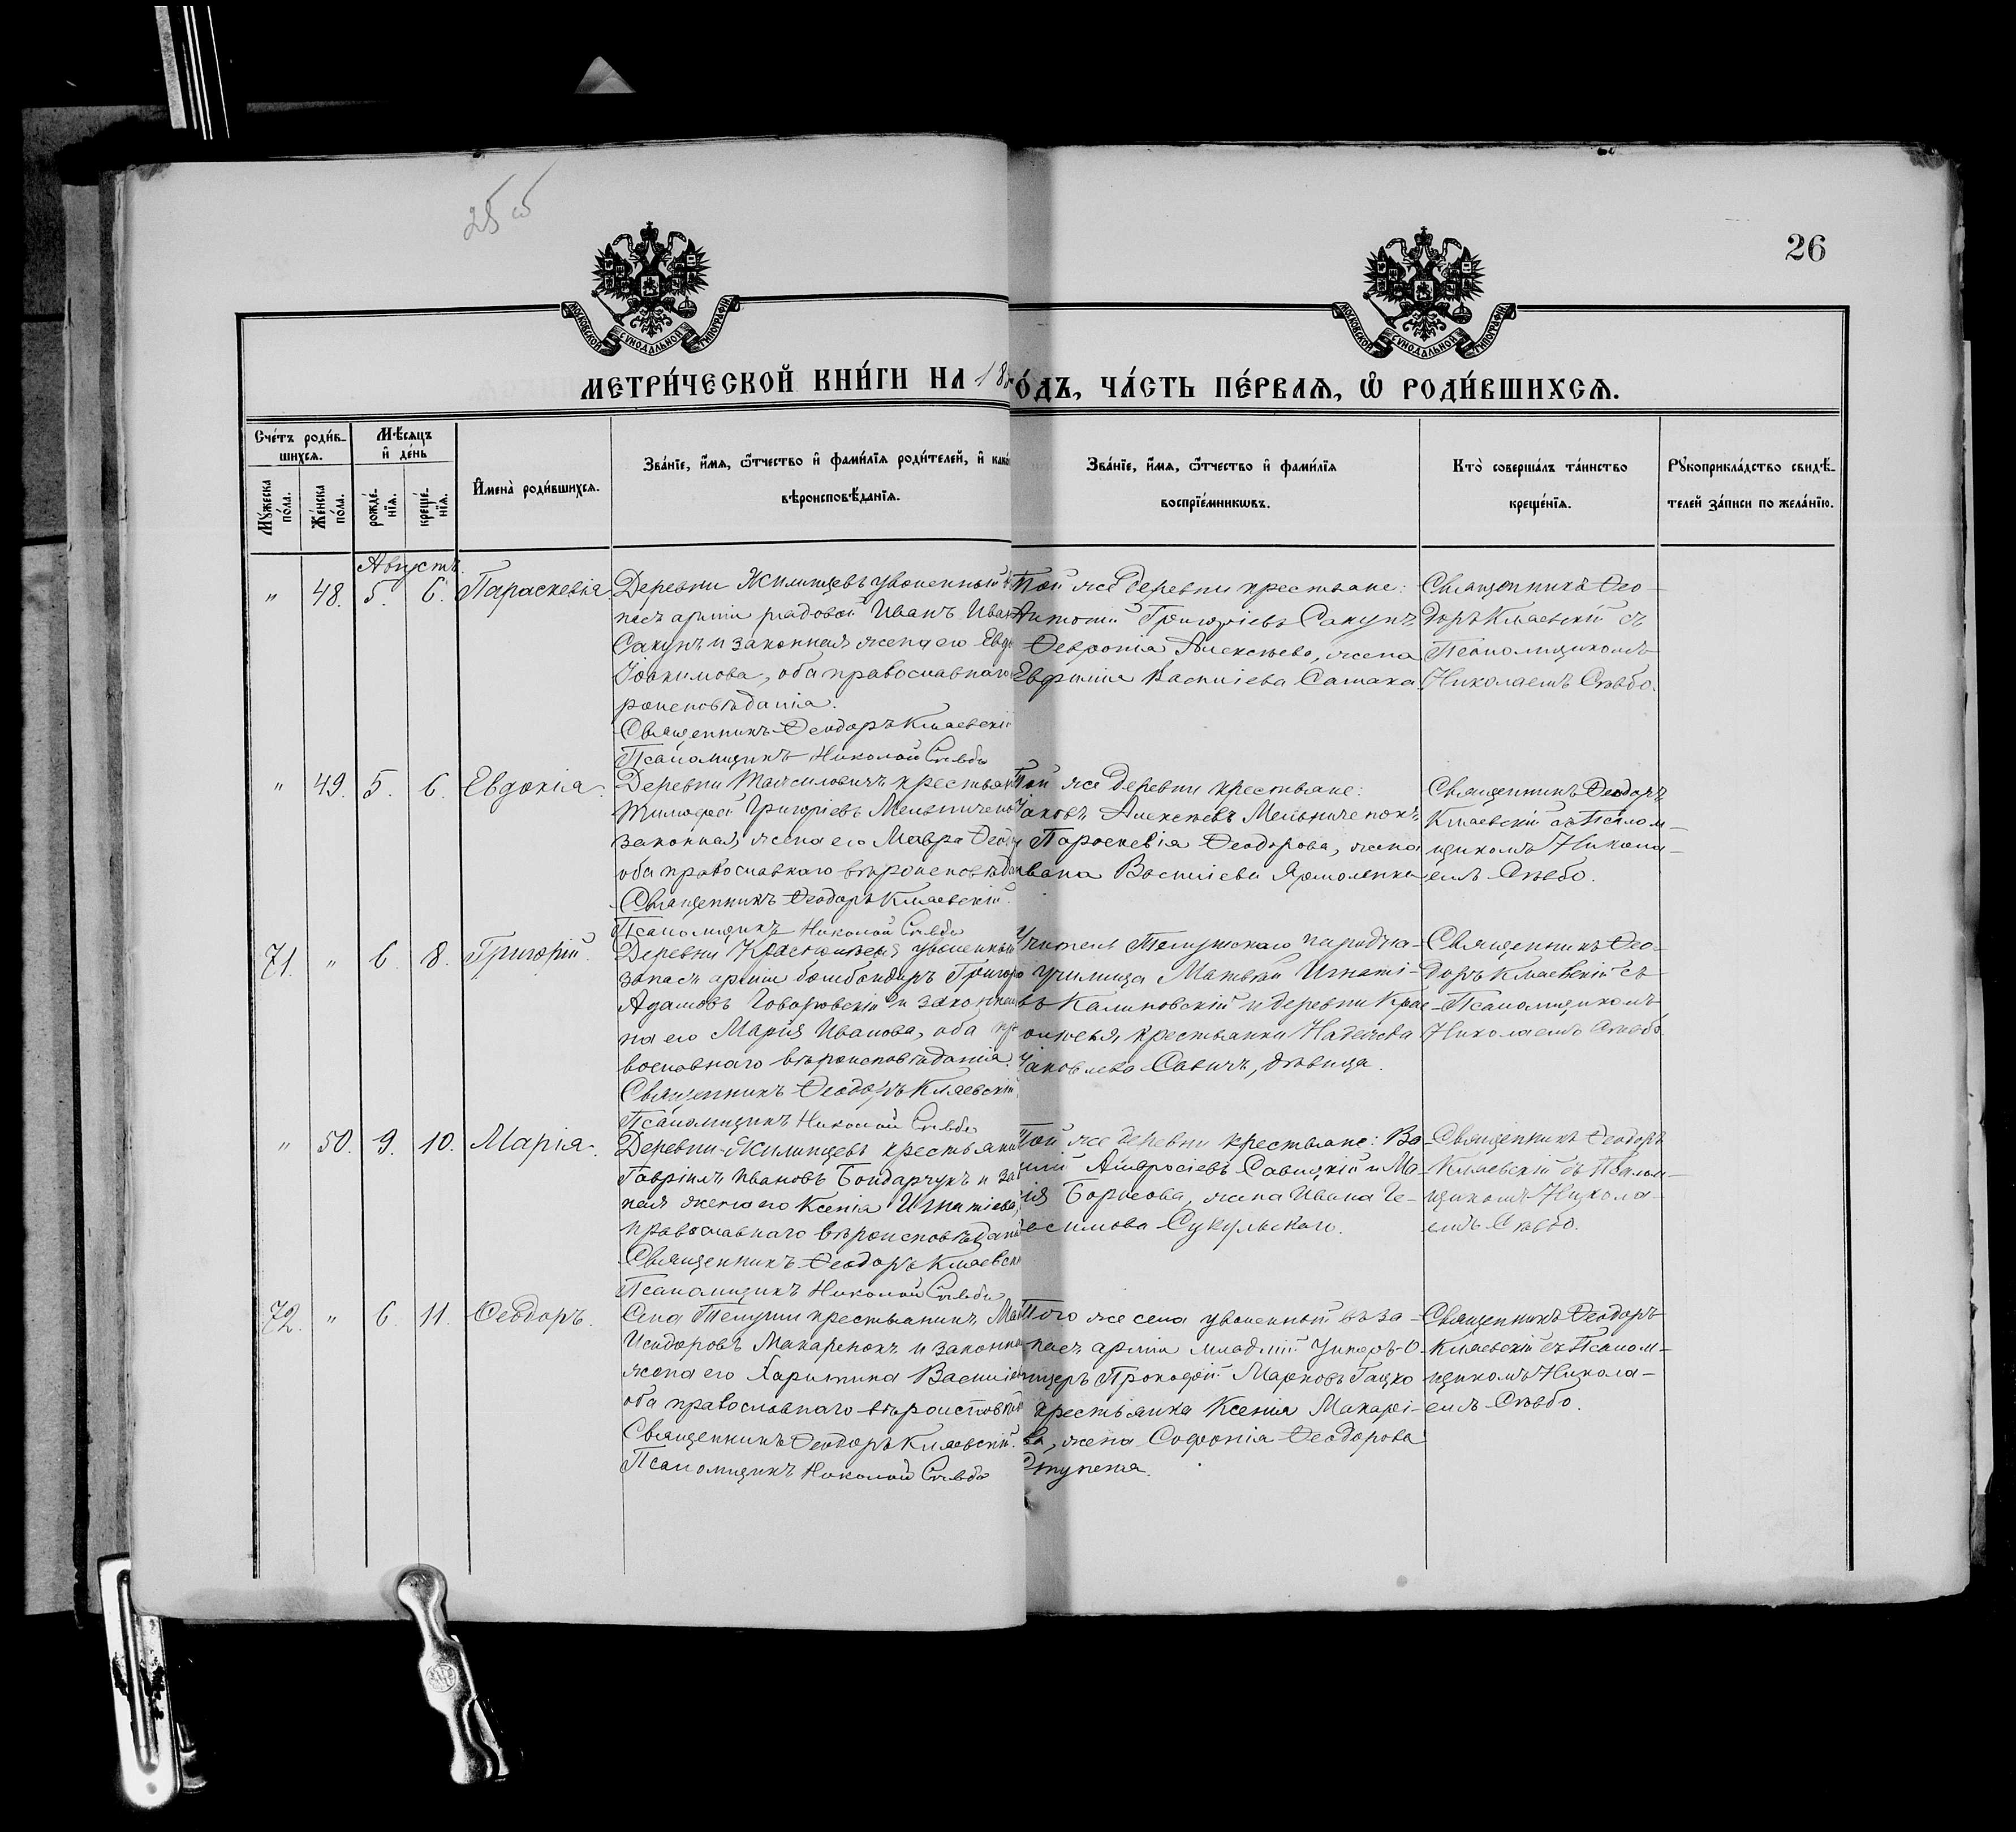 25 об
26
МОСКОВСКОЙ СУНОДАЛЬНОЙ ТИПОГРАФІИ
МОСКОВСКОЙ СУНОДАЛЬНОЙ ТИПОГРАФІИ
МЕТРИ́ЧЕСКОЙ КНИ́ГИ НА 18
О́ДЪ, ЧА́СТЬ ПЕ́РВАѦ, Ѡ҆ РОДИ́ВШИХСѦ.
Сче́тъ роди́в-
шихсѧ.
Мѣ́сѧцъ
и҆ де́нь
Мꙋ́жеска
по́ла.
Же́нска
по́ла.
рожде́-
нїѧ.
креще́-
нїѧ.
И҆мена̀ роди́вшихсѧ.
Зва́нїе, и҆́мѧ, ѻ҆́тчество и҆ фами́лїѧ роди́телей, и҆ как
вѣроисповѣ́данїѧ.
Зва́нїе, и҆́мѧ, ѻ҆́тчество и҆ фами́лїѧ
воспрїе́мникѡвъ.
Кто̀ соверша́лъ та́инство
креще́нїѧ.
Рꙋкоприкла́дство свидѣ́-
телей за́писи по жела́нїю.
Августъ.
" 48. 5. 6. Параскевія
Деревни Жилинцевъ уволенный
пасъ арміи рядовой Иванъ Иван
Сакунъ и законная жена его Евд
Іоакимова, оба православнаго
роисповѣданія.
Священникъ Ѳеодоръ Кляевскій
Псаломщикъ Николай Сльбо
Той же деревни крестьяне:
Антоній Григоріевъ Сакунъ
Ѳевронія Алексѣева, жена
Евфимія Василіева Самака
Священникъ Ѳео-
доръ Кляевскій съ
Псаломщикомъ
Николаемъ Сльбо.
" 49. 5. 6. Евдокія.
Деревни крестьян
Тимоѳей Григоріевъ Мельничено
законная жена его Мавра Ѳеод
оба православнаго вѣроисповѣдан
Священникъ Ѳеодоръ Кляевскій.
Псаломщикъ Николай Сльбо
Той же деревни крестьяне:
Іаковъ Алексѣевъ Мельниченокъ
Параскевія Ѳеодорова, жена
вана Василіева Ярмоленка
Священникъ Ѳеодоръ
Кляевскій съ Псалом-
щикомъ Никола-
емъ Сльбо.
71. " 6. 8. Григорій.
Деревни уволенный
запасъ арміи бомбандиръ Григор
Адамовъ Говоровскій и законная
на его Марія Иванова, оба пр
вославнаго вѣроисповѣданія.
Священникъ Ѳеодоръ Кляевскій
Псаломщикъ Николай Сльбо
Учитель Телушскаго народна-
го училища Матвѣй Игнаті-
въ Калиновскій и деревни Крас-
крестьянка Надежда
Іаковлева Савичъ, дѣвица.
Священникъ Ѳео-
доръ Кляевскій съ
Псаломщикомъ
Николаемъ Сльбо
" 50. 9. 10. Марія.
Деревни Жилинцевъ крестьяни
Гавріилъ Ивановъ Бондарчукъ и за
ная жена его Ксенія Игнатіева,
православнаго вѣроисповѣдані
Священникъ Ѳеодоръ Кляевск
Псаломщикъ Николай Сльбо
Той же деревни крестьяне: Ва-
илій Амвросіевъ Савицкій и Ма-
рія Борисова, жена Ивана Ге-
расимова Сукульскаго.
Священникъ Ѳеодоръ
Кляевскій съ Псалом-
щикомъ Никола-
емъ Сльбо.
72. " 6. 11. Ѳеодоръ.
Села Телуши крестьянинъ Ма
Исидоровъ Макаренокъ и законна
жена его Харитина Василіе
оба православнаго вѣроисповѣд
Священникъ Ѳеодоръ Кляевскій.
Псаломщикъ Николай Сльбо
Того же села уволенный въ за-
пасъ арміи младшій Унтеръ-О-
фицеръ Прокофій Марковъ Гацко
крестьянка Ксенія Макарі-
ва, жена Софронія Ѳеодорова
Ступеня.
Священникъ Ѳеодоръ
Кляевскій съ Псалом-
щикомъ Никола-
емъ Сльбо.